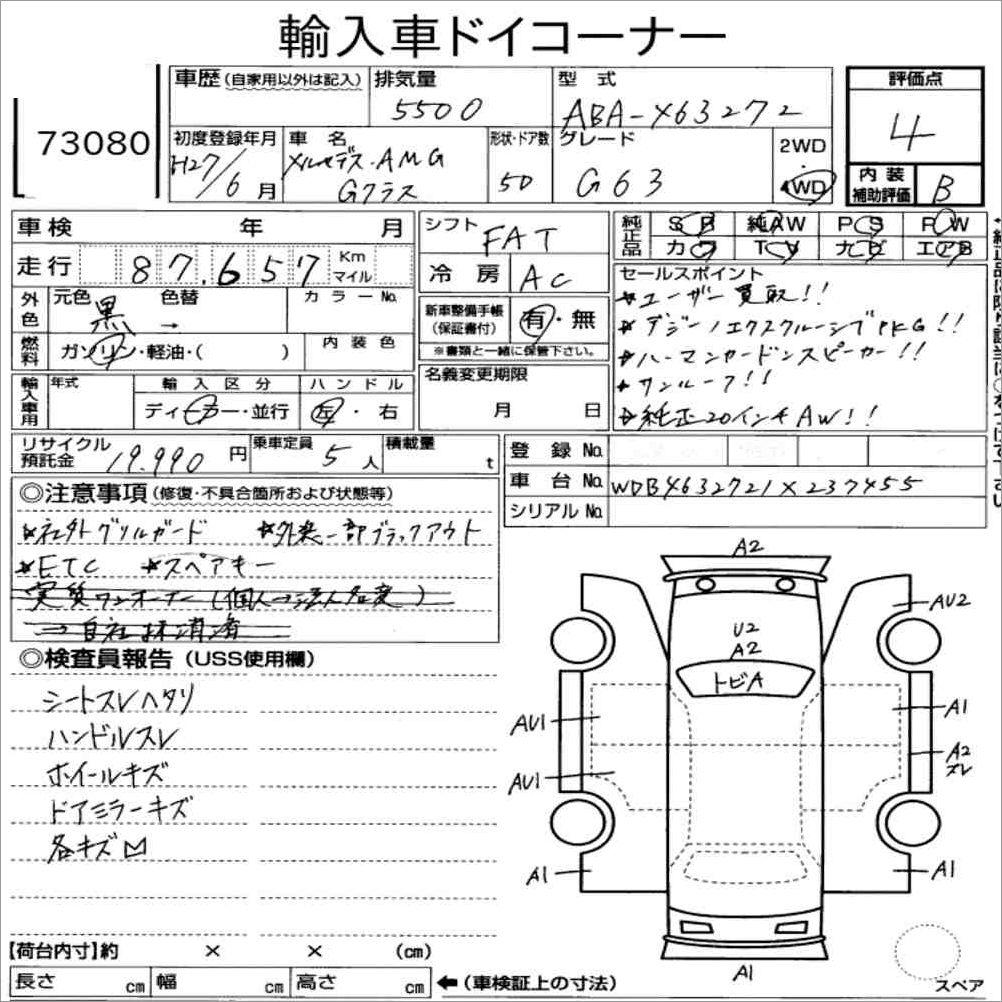 輸入車ドイコーナー
73080
車歴(自家用以外は記入) 排気量 型式 評価点
5500 ABA-463272 4
初度登録年月 車名 形状・ドア数 グレード 2WD
H27/6月 メルセデス・AMG Gクラス 5D G63 4WD
内装補助評価 B
車検 年 月 シフト FAT
純正品 SR 純AW PS PW
カワ TV ナビ エアB
走行 87,657 Km マイル
冷房 AC
セールスポイント
★ユーザー買取!!
★デジーノエクスクルーシブPKG!!
★ハーマンカードンスピーカー!!
★サンルーフ!!
★純正20インチAW!!
外色 元色 黒 → 色替 カラーNo.
新車整備手帳(保証書付) 有・無
※書類と一緒に保管下さい。
燃料 ガソリン・軽油・( ) 内装色
名義変更期限
月 日
輸入車用 年式 輸入区分 ハンドル
ディーラー・並行 左・右
リサイクル預託金 19.990円 乗車定員 5人 積載量 t
登録No.
車台No. WDB4632721X237455
シリアルNo.
◎注意事項(修復・不具合箇所および状態等)
★社外グリルガード ★外装一部ブラックアウト
★ETC ★スペアキー
実質ワンオーナー(個人→法人名変)
→自社抹消済
◎検査員報告(USS使用欄)
シートスレヘタリ
ハンドルスレ
ホイールキズ
ドアミラーキズ
各キズ凹
A2
AU2
U2
A2
トビA
AU1
A1
A2
スレ
AU1
A1
A1
A1
スペア
【荷台内寸】約 × × (cm)
長さ cm 幅 cm 高さ cm ←(車検証上の寸法)